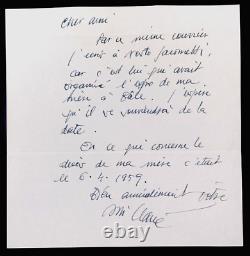 Cher ami
Par ce même courrier
j'écris à
car c'est lui qui avait
organisé l'expo de ma
mère à Bâle. J'espère
qu'il se souviendra de la
date.
En ce qui concerne le
décès de ma mère c'était
le 6.4.1959.
Bien amicalement vôtre